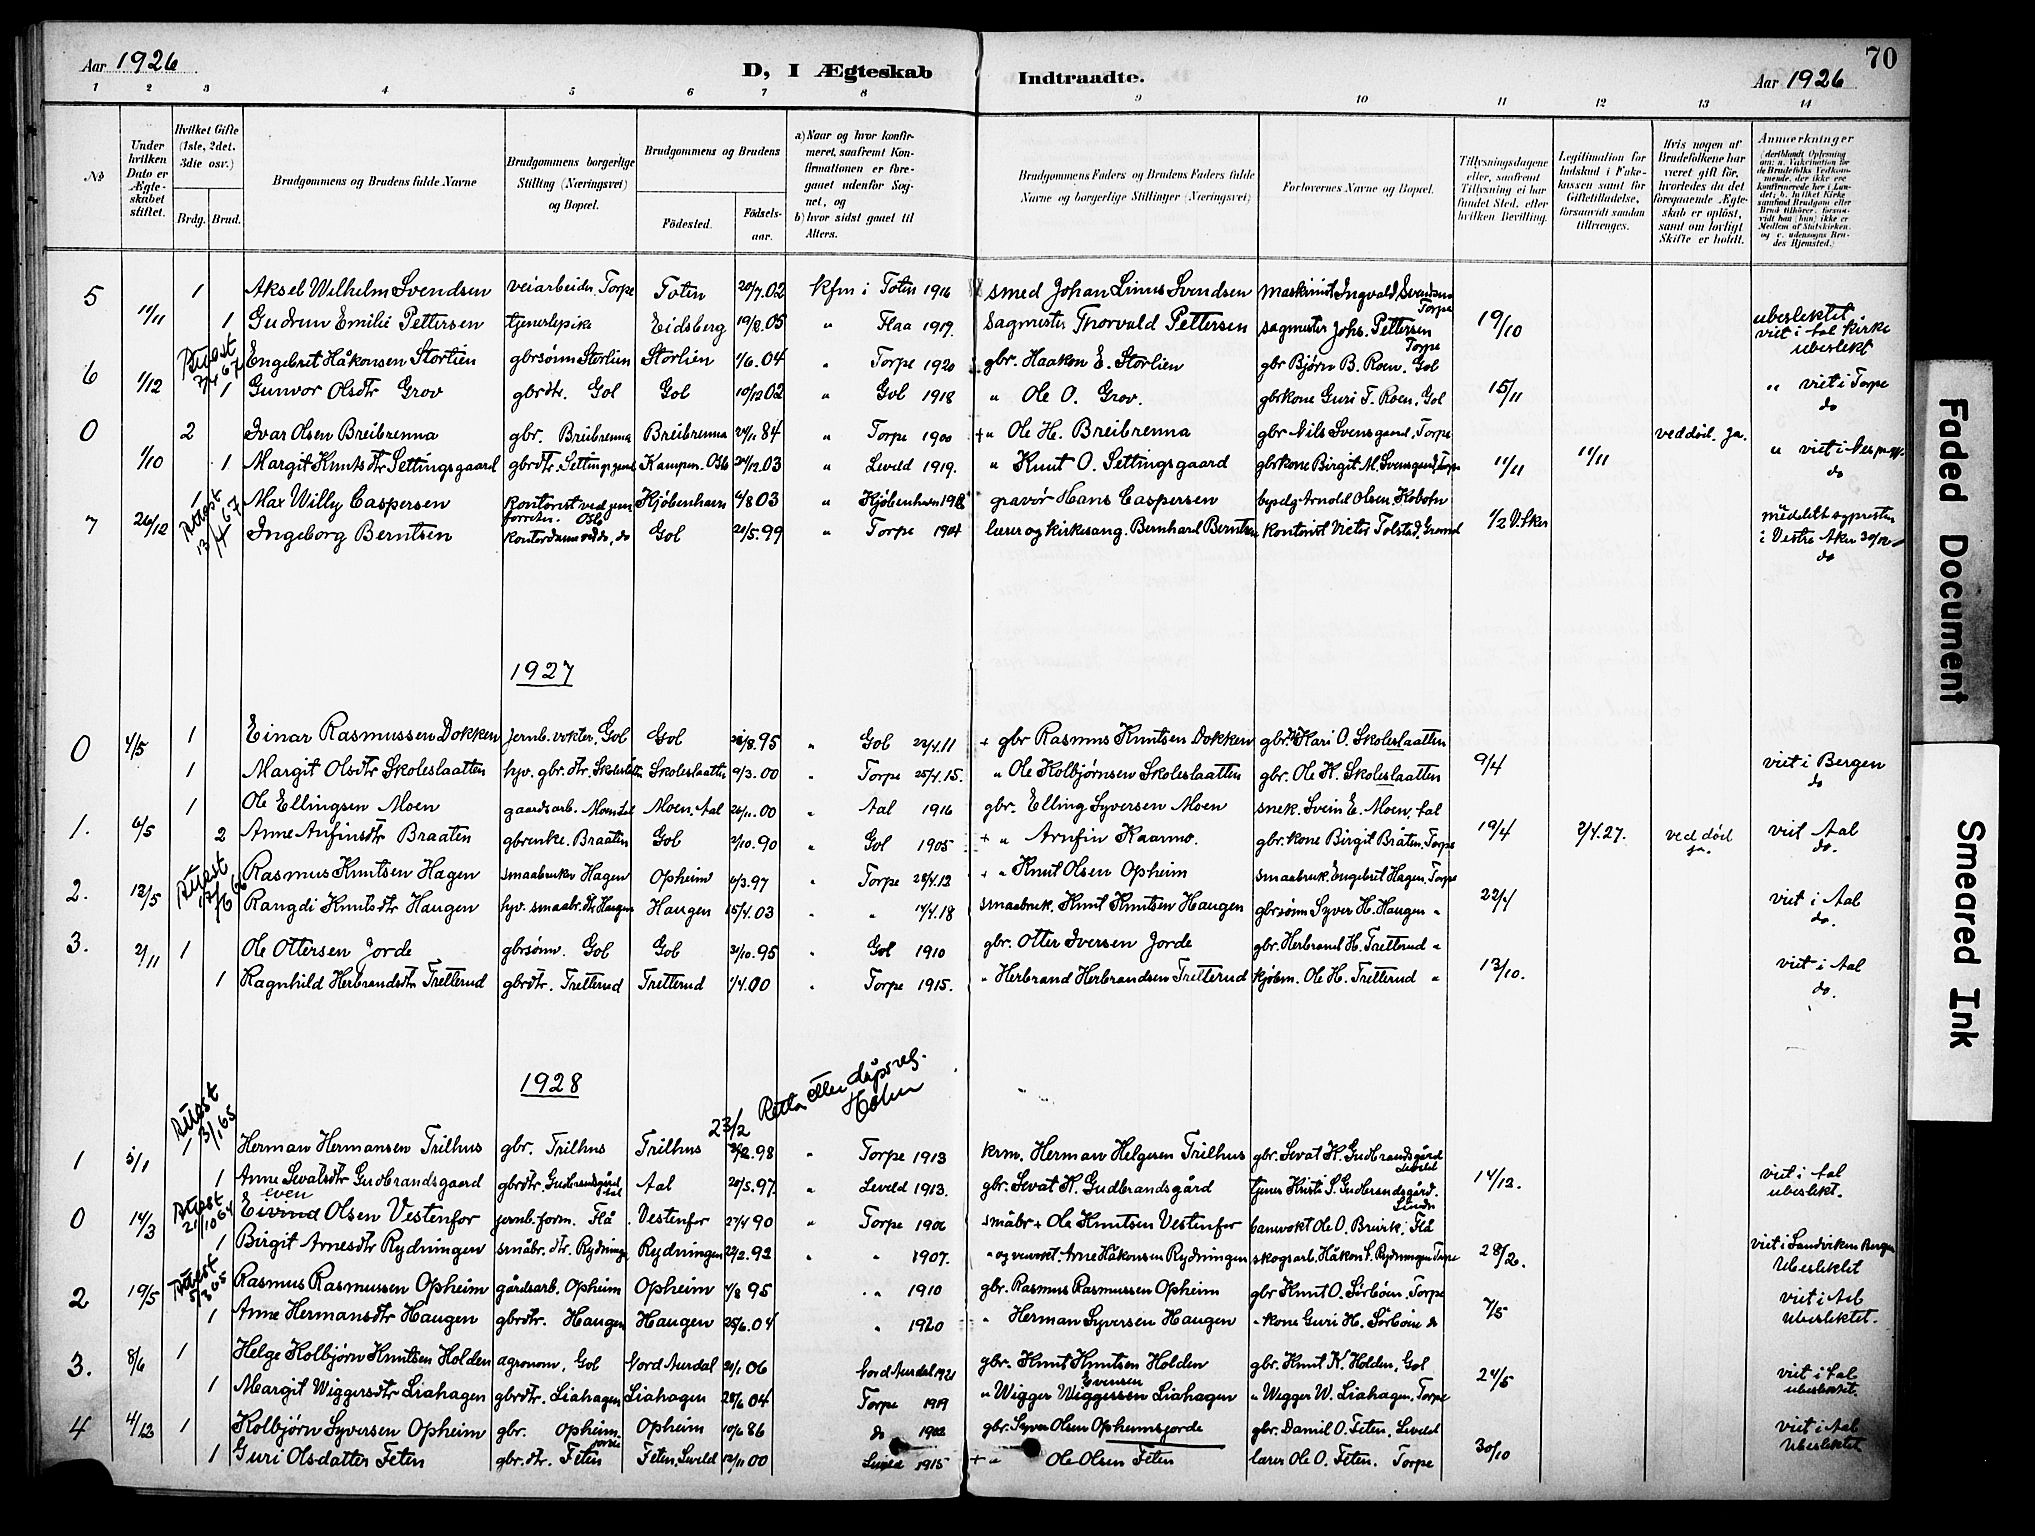 70
Aar 1926
D, I Ægteskab Indtraadte.
Aar 1926
1 2 3 4 5 6 7 8 9 10 11 12 13 14
No
Under hvilken Dato er Ægteskabet stiftet.
Hvilket Gifte (1ste, 2det, 3die osv.)
Brdg. Brud.
Brudgommens og Brudens fulde Navne
Brudgommens borgerlige Stilling (Næringsvei) og Bopæl.
Brudgommens og Brudens
Fødested. Fødselsaar.
a) Naar og hvor konfirmeret, saafremt Konfirmationen er foregaaet udenfor Sognet, og
b) hvor sidst gaaet til Alters.
Brudgommens Faders og Brudens Faders fulde Navne og borgerlige Stillinger (Næringsvei)
Forlovernes Navne og Bopæl.
Tillysningsdagene eller, saafremt Tillysning ei har fundet Sted, efter hvilken Bevilling.
Legitimation for Indskud i Enkekassen samt for Giftetilladelse, forsaavidt saadan tiltrænges.
Hvis nogen af Brudefolkene har været gift før, hvorledes da det foregaaende Ægteskab er opløst, samt om lovligt Skifte er holdt.
Anmerkninger
5 1 Aksel Wilhelm Svendsen veiarbeider, Torpe Toten 20/7.02 kfm i Toten 1916 smed Johan Linus Svendsen maskinist Ingvald Svendsen Torpe
11/11 1 Gudrun Emilie Pettersen tjenerpike Eidsberg 19/2.05 " Flaa 1919. Sagmester Thorvald Pettersen sagmester Johs. Pettersen Torpe 19/10 ubeslektet. viet i Aal kirke
6 Attest Engebret Håkonsen Storlien gbrsønn Storlien Storlien 1/6.04 " Torpe 1920 gbr. Haakon E. Storlien gbr Bjørn B. Roen. Gol ubeslekt
1/12 1 Gunvor Olsdtr Grov gbrdtr. Gol Gol 10/12 02 " Gol 1918 " Ole O. Grov. gbrkone Guri T. Roen. Gol 15/11 " viet i Torpe
do
0 2 Ivar Olsen Breibrenna gbr. Breibrenna Breibrenna 24/11 84 " Torpe 1900 + " Ole H. Breibrenna gbr Nils Svensgaard, Torpe ved død. Ja.
1/10 1 Margit Knutsdtr Settingsgaard gbrdtr. Settingsgaard Kampen. Oslo 24/12.03 " Leveld 1919. " Knut O. Settingsgaard gbrkone Birgit M Svensgaard, Torpe 11/11 11/11 " viet i Nes
do
7 1 Max Willy Caspersen Kontorist ved Kjøbenhavn 4/8 03 " Kjøbenhavn 1918 gravør Hans Caspersen Arnold Olsen. meddelt sogneprsten
26/12 Attest 13/4 67 Ingeborg Berntsen Gol 21/5.99 " Torpe 1904 lærer og kirkesang. Bernhard Berntsen kontorist Victor Tolstad, 1/2 V. Aker i Vestre Aker 30/12
do
1927
0 4/5 1 Einar Rasmussen Dokken jernb. vokter. Gol Gol 26/8.95 " Gol 23/4.11 + gbr Rasmus Knutsen Dokken Kari O. Skoleslaatten
1 Margit Olsdtr Skoleslaatten hjv. gbr. dtr. Skoleslatt. Skoleslaatten 9/3.00 " Torpe 25/4.15. " Ole Kolbjørnsen Skoleslaatten gbr. Ole K. Skoleslaatten 9/4 viet i Bergen
do
1. 6/5 1 Ole Ellingsen Moen gaardsarb. Moen, Aal 26/11.00 " Aal 1916 gbr. Elling Syversen Moen snek. Svein E. Moen, Aal
2 Anne Anfinsdtr Braaten gbrenke. Braaten Gol 2/10.90 " Gol 1905 + " Arnfin Kaarmo. gbrkone Birgit Bråten, Torpe 19/4 2/4.27. ved død ja. viet Aal
do.
2. 12/5 Attest Rasmus Knutsen Hagen smaabruker Hagen Opheim 6/3.97 " Torpe 28/4.12 + " Knut Olsen Opheim smaabruk. Engebret Hagen, Torpe
Rangdi Knutsdtr Haugen hjv. smaabr. dtr Haugen Haugen 15/4.03 " " 14/4.18 smaabruk. Knut Knutsen Haugen gbrsønn Syver H. Haugen " 22/4 viet i Aal
do.
3. 2/11 1 Ole Ottersen Jorde gbrsønn. Gol Gol 31/10.95 " Gol 1910 gbr. Otter Iversen Jorde gbr. Herbrand H. Tretterud "
1 Ragnhild Herbrandsdtr Tretterud gbrdtr. Tretterud Tretterud 1/4.00 " Torpe 1915. " Herbrand Herbrandsen Tretterud kjøbm. Ole H. Tretterud " 13/10. viet i Aal
do.
1928
Attest 3/1 65 23/2 Retta etter dåpsreg. Holm
1 5/1 1 Herman Hermansen Trilhus gbr. Trilhus Trilhus 98 " Torpe 1913 krm. Herman Helgesen Trilhus gbr. Sevat K. Gudbrandsgård Leveld
1 Anne Sevatsdtr Gudbrandsgaard gbrdtr. Gudbrandsgård Aal Aal 20/5.97. " Leveld 1913. gbr. Sevat K. Gudbrandsgård tjener Kristi S. Gudbrandsgård. 14/12. viet i Aal
ubeslekt.
even
0 14/3 Attest 21/10 64 Eivind Olsen Vestenfor jernb. form. Flå. Vestenfor 27/4 90 " Torpe 1906 småbr + Ole Knutsen Vestenfor banevokt Ole O. Brevik, Flå
1 Birgit Arnesdtr Rydningen småbr. dtr. Rydningen Rydningen 22/2.92 " " 1907. " og veivokt. Arne Håkonsen Rydningen skogsarb. Håkon S. Rydningen Torpe 28/2. viet i Sandviken Bergen
Ubeslektet
2 19/5 Attest Rasmus Rasmussen Opheim gårdsarb. Opheim Opheim 4/8 95 " " 1910 gbr. Rasmus Rasmussen Opheim gbr Knut O. Sørbøen, Torpe
1 Anne Hermansdtr Haugen gbrdtr. Haugen Haugen 25/6.04 " 1920 " Herman Syversen Haugen " kone Guri H. Sørbøen do 7/5 viet i Aal
Ubeslektet.
3. 8/6 1 Helge Kolbjørn Knutsen Holden agronom, Gol Nord Aurdal 20/1 06 Nord Aurdal 1921 gbr. Knut Knutsen Holden gbr. Knut K. Holden, Gol
Evensen
1 Margit Wiggersdtr Liahagen gbrdtr. Liahagen Liahagen 28/6 04 Torpe 1919 " Wigger Wiggersen Liahagen " Wigger W. Liahagen, Torpe 24/5 viet i Aal
ubeslektet.
4 4/12 1 Kolbjørn Syversen Opheim gbr. Opheim jorde Opheim 10/6 86 do 1902 gbr. Syver Olsen Opheimsjorde gbr. Daniel O. Feten, Leveld
1 Guri Olsdatter Feten gbr. dtr. Feten Feten, Leveld 12/11 00 Leveld 1915 + " Ole Olsen Feten lærer Ole O. Feten. Torpe 30/10 viet i Aal
Ubeslektet
Faded Document
Smeared Ink